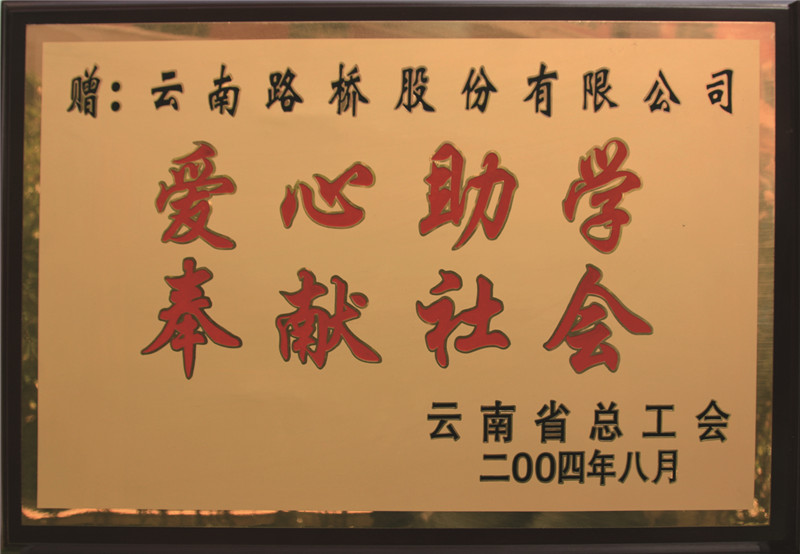 赠：云南路桥股份有限公司
爱心助学
奉献社会
云南省总工会
二00四年八月